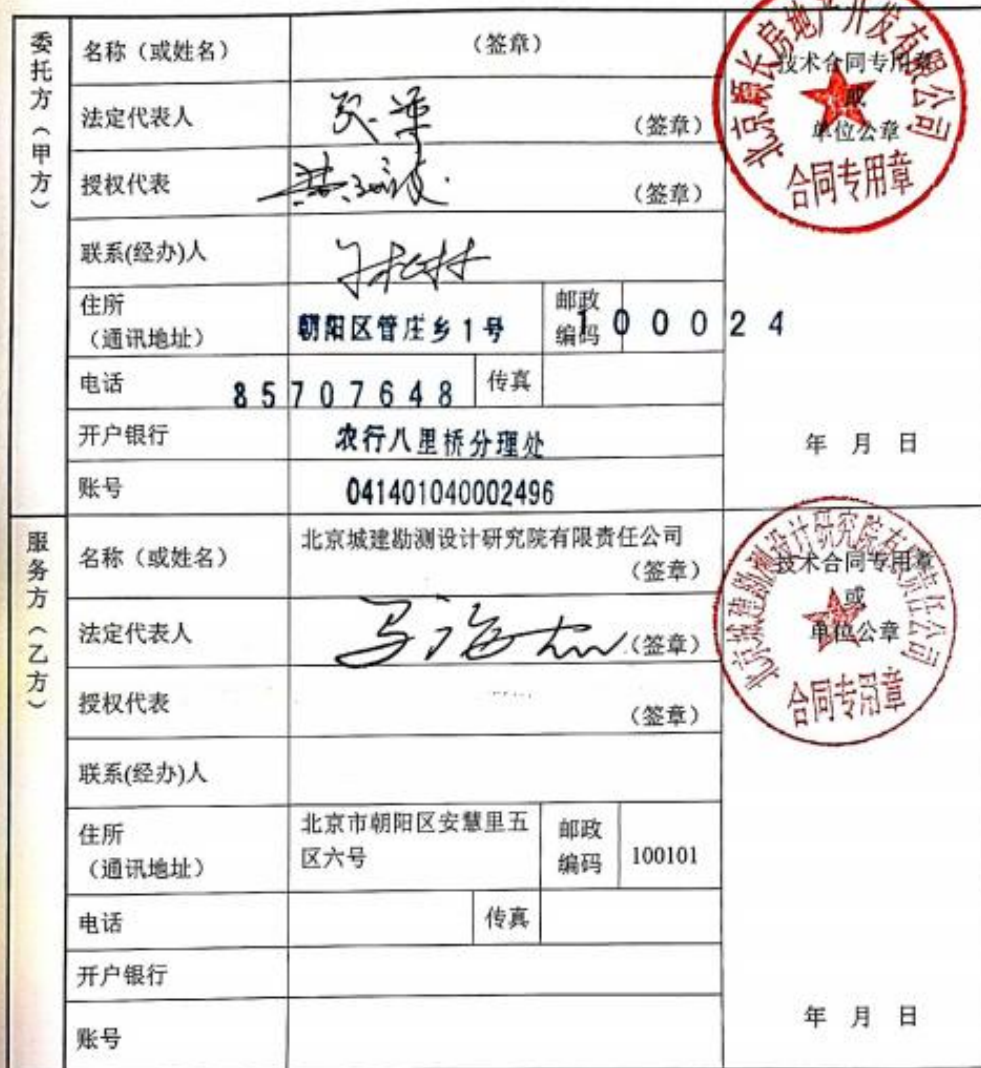 委托方（甲方）
名称（或姓名）
（签章）
法定代表人
（签章）
授权代表
（签章）
联系(经办)人
住所
（通讯地址）
朝阳区管庄乡1号
邮政
编码
100024
电话
85707648
传真
开户银行
农行八里桥分理处
账号
041401040002496
技术合同专用章
或
单位公章
合同专用章
年 月 日
服务方（乙方）
名称（或姓名）
北京城建勘测设计研究院有限责任公司
（签章）
法定代表人
（签章）
授权代表
（签章）
联系(经办)人
住所
（通讯地址）
北京市朝阳区安慧里五
区六号
邮政
编码
100101
电话
传真
开户银行
账号
北京城建勘测设计研究院有限责任公司
技术合同专用章
或
单位公章
合同专用章
年 月 日